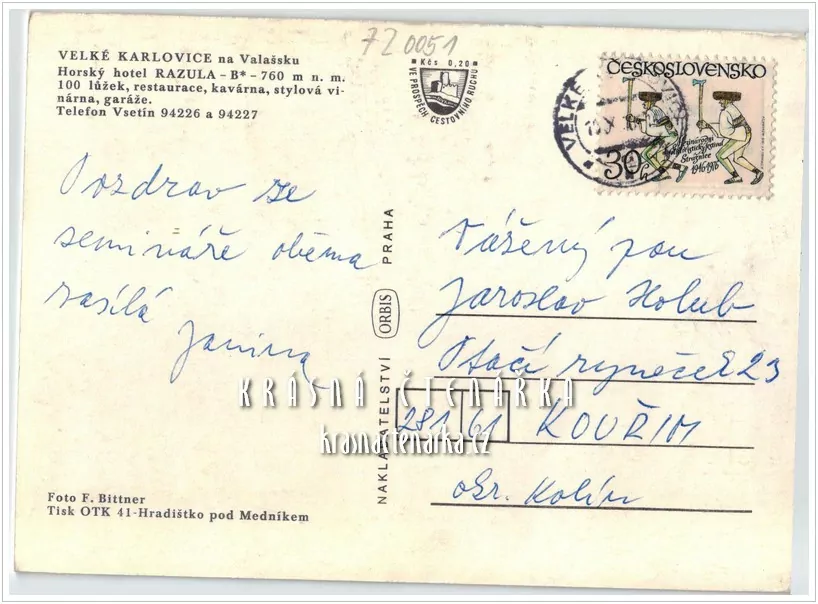 72 0051
VELKÉ KARLOVICE na Valašsku
Horský hotel RAZULA - B* - 760 m n. m.
100 lůžek, restaurace, kavárna, stylová vi-
nárna, garáže.
Telefon Vsetín 94226 a 94227
Kčs 0,20
VE PROSPĚCH CESTOVNÍHO RUCHU
ČESKOSLOVENSKO
30
Strážnice
1946-1976
VELKÉ
Pozdrav ze
semináře oběma
zasílá
Janina
NAKLADATELSTVÍ ORBIS PRAHA
Vážený pan
Jaroslav Holub
ryneček 23
281 61 KOUŘIM
okr. Kolín
KRÁSNÁ ČTENÁŘKA
krasnactenarka.cz
Foto F. Bittner
Tisk OTK 41-Hradištko pod Medníkem